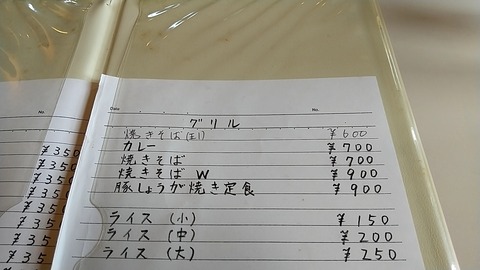 No.
¥350
¥350
¥350
¥350
¥350
¥35
¥35
¥35
Date
No.
グリル
焼きそば(玉1) ¥600
カレー ¥700
焼きそば ¥700
焼きそば W ¥900
豚しょうが焼き定食 ¥900
ライス (小) ¥150
ライス (中) ¥200
ライス (大) ¥250